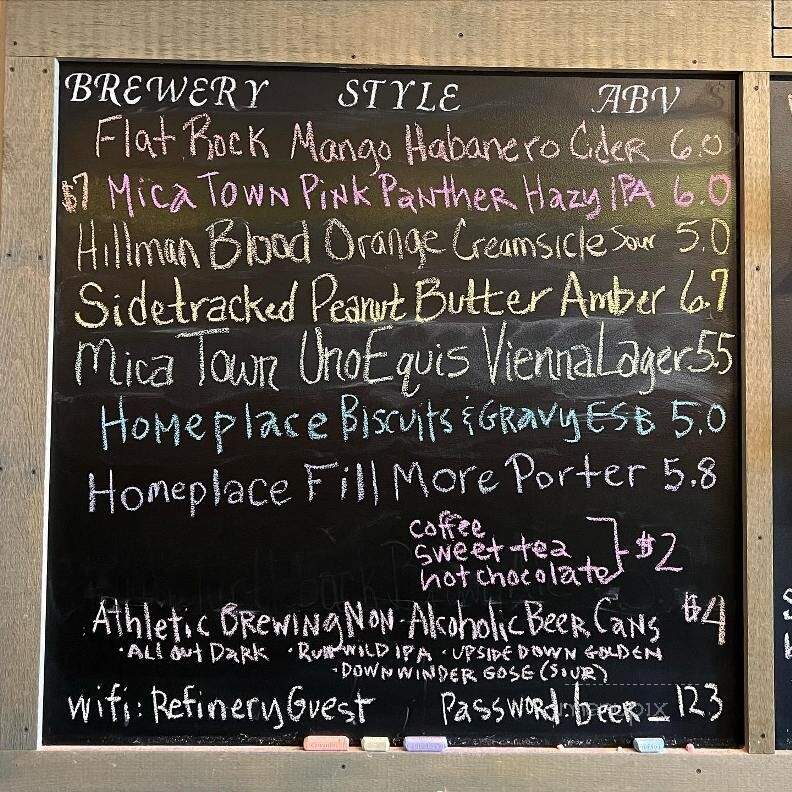 BREWERY STYLE ABV $
Flat Rock Mango Habanero Cider 6.0
$7 Mica Town Pink Panther Hazy IPA 6.0
Hillman Blood Orange Creamsicle Sour 5.0
Sidetracked Peanut Butter Amber 6.7
Mica Town UnoEquis Vienna Lager 5.5
Homeplace Biscuits & Gravy ESB 5.0
Homeplace Fill More Porter 5.8
coffee
sweet tea
hot chocolate
$2
Athletic Brewing Non-Alcoholic Beer Cans $4
• All Out Dark • Run Wild IPA • Upside Down Golden
• Downwinder Gose (Sour)
wifi: RefineryGuest Password: beer_123